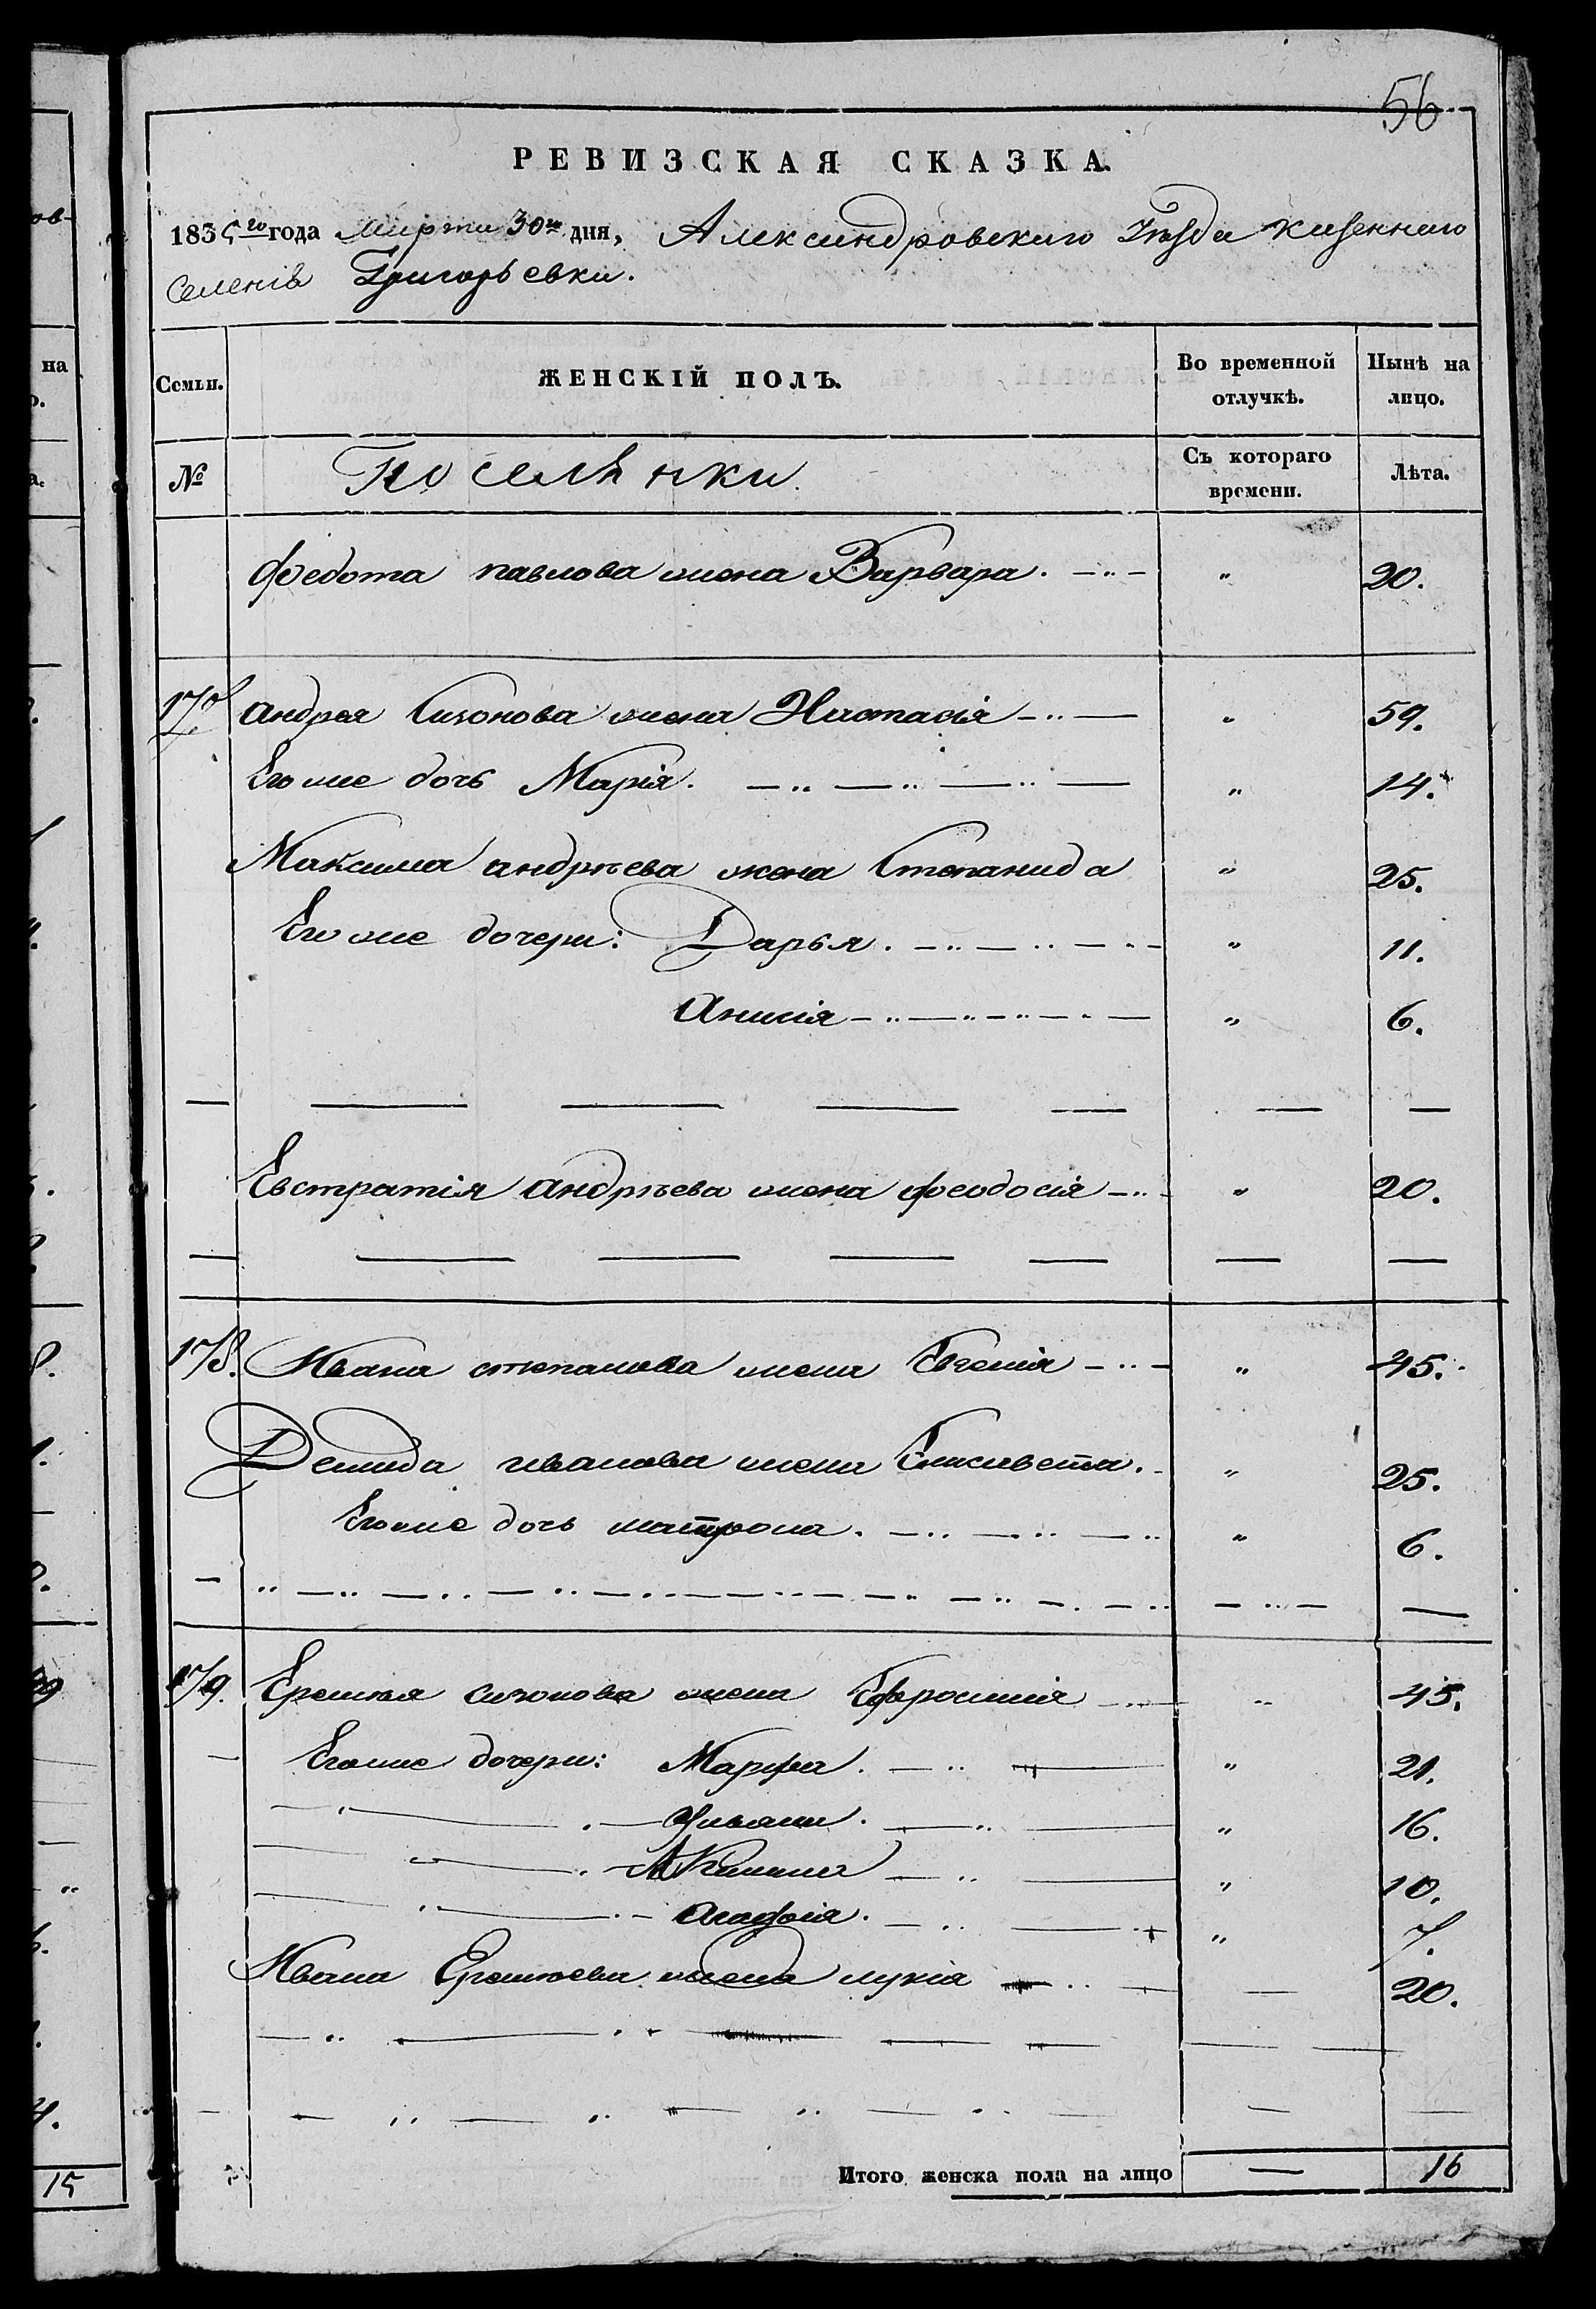 56
РЕВИЗСКАЯ СКАЗКА.
1835го года Марта 30го дня, Александровскаго Уѣзда казеннаго
селенія Григорьевки.
Семьи. ЖЕНСКІЙ ПОЛЪ. Во временной отлучкѣ. Нынѣ на лицо.
№ Поселянки. Съ котораго времени. Лѣта.
Федота павлова жена Варвара. " 20.
177 Андрея Сизонова жена Настасія " 59.
Его же дочь Марія. " 14.
Максима андрѣева жена Степанида " 25.
Его же дочери: Дарья. " 11.
Анисія " 6.
Евстратія Андрѣева жена феодосія " 20.
178. Ивана степанова жена Евгенія " 45.
Демида иванова жена Елисавета. " 25.
Его же дочь матрона. " 6.
179. Еремѣя сизонова жена Ефросинія " 45.
Его же дочери: Марфа. " 21.
Ульяна. " 16.
Акилина " 10.
Агафія. " 7.
Ивана Еремѣева жена лукія 20.
Итого женска пола на лицо — 16
на
15